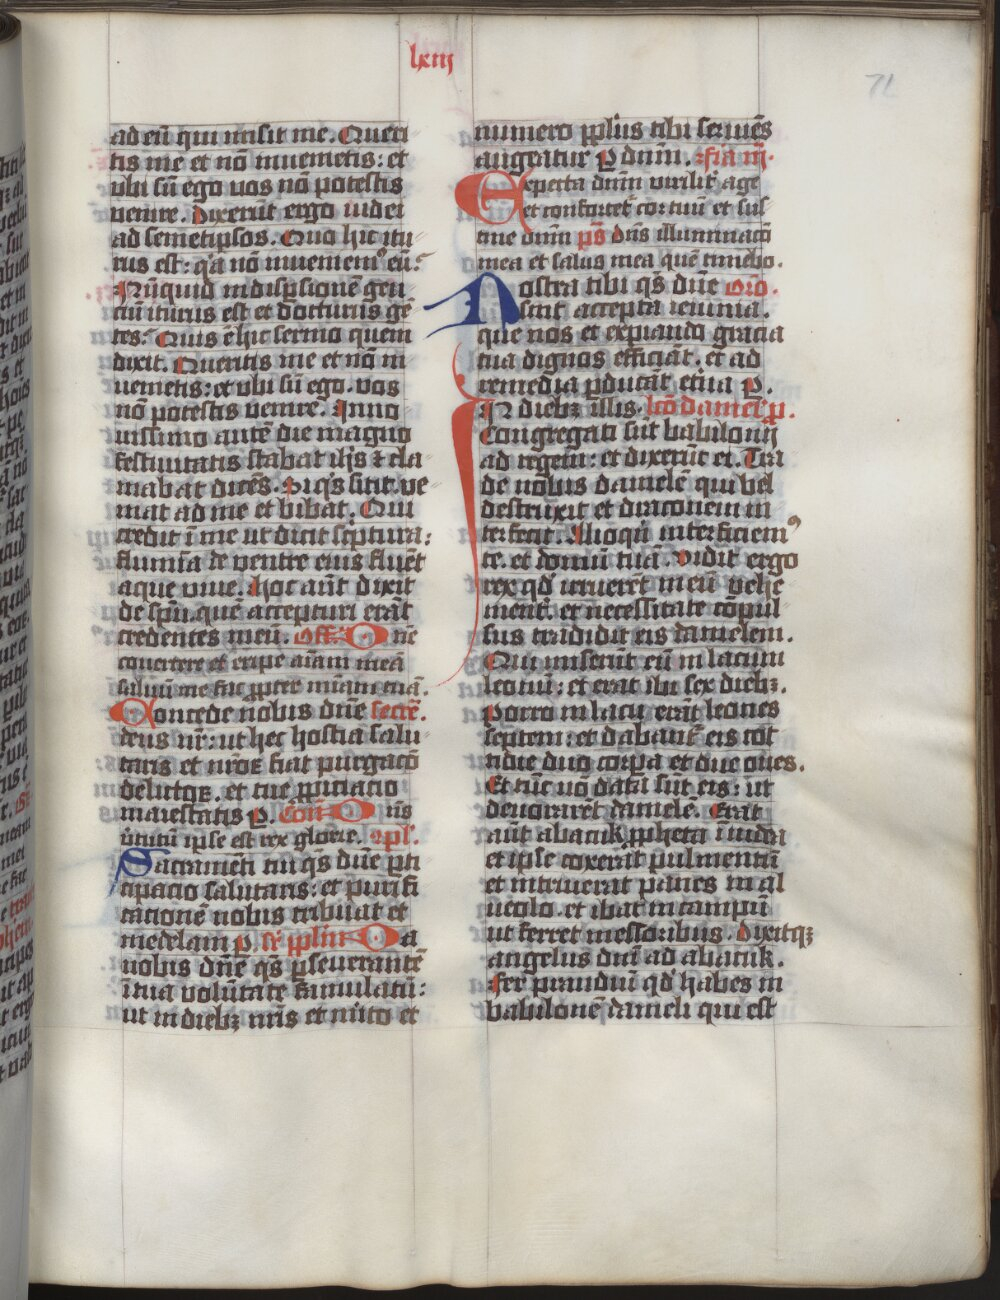 lxiij
71
ad eū qui misit me. Queri
tis me et nō inuenietis: et
vbi sū ego vos nō potestis
venire. Dixerūt ergo iudei
ad semetipsos. Quo hic itu
rus est: q̇a nō inueniemꝰ eū?
Nūquid in dispsionē gen
tiū iturus est et docturus gē
tes? Quis ē hic sermo quem
dixit. Queritis me et nō in
uenietis: et vbi sū ego. vos
nō potestis venire. In no
uissimo autē die magno
festiuitatis stabat ihs ⁊ cla
mabat dicēs. Si q̇s sitit. ve
niat ad me et bibat. Qui
credit ī me ut dicit scptura:
flumīa de ventre eius fluēt
aque viue. Hoc aūt dixit
de spū. quē accepturi erāt
credentes in eū. off. Dn̄e
conuertere et eripe aīam meā
saluū me fac ꝓpter mīam tuā.
Concede nobis dn̄e secre.
deus nr̄: ut hec hostia salu
taris et nr̄oꝝ fiat purgacō
delictoꝝ. et tue ꝓpiciacio
maiestatis P. Cōīo Dn̄s
v̇tutū ipse est rex glorie. 9pl.
Sacramēti tui q̄s dn̄e ꝑti
cipacio salutaris: et purifi
cacionē nobis tribuat et
medelam P. Sr̄ pplm Da
nobis dn̄e q̄s ꝑseuerantē
ī tua volūtate famulatū:
ut in diebꝫ nr̄is et mīto et
numero pplus tibi seruiēs
augeatur P dn̄m. Fīa iij.
Expecta dn̄m virilit̄ age
et confortet̄ cor tuū et sus
tine dn̄m ps̄ Dn̄s illuminacō
mea et salus mea quē timebo.
Nostra tibi q̄s dn̄e orō.
sint accepta ieiunia.
que nos et expiando gracia
tua dignos efficiāt. et ad
remedia ꝑducāt et̄na P.
In diebꝫ illis. lcō danieľ ꝓ.
Congregati sūt babilonij
ad regem: et dixerūt ei. Tra
de nobis danielē qui bel
destruxit et draconem in
terfecit. Alioqn̄ interficiemꝰ
te. et domū tuā. Vidit ergo
rex qd̓ irruerēt in eū vehe
ment̄. et necessitate cōpul
sus tradidit eis danielem.
Qui miserūt eū in lacum
leonū: et erat ibi sex diebꝫ.
Porro in lacu erāt leones
septem: et dabant̄ eis cot
tidie duo corpa et due oues.
Et tūc nō data sūt eis: ut
deuorarēt danielē. Erat
aūt abacuk ꝓpheta ī iuda
et ipse coxerat pulmentū
et intriuerat panes in al
ueolo. et ibat in campū
ut ferret messoribus. Dixitqꝫ
angelus dn̄i ad abacuk.
Fer prandiū qd̓ habes in
babilonē danieli qui est